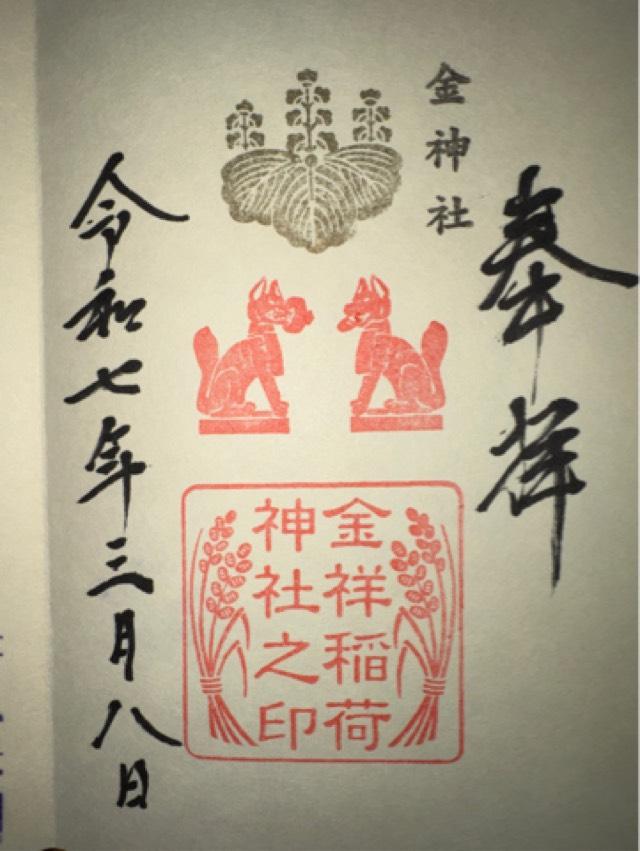 奉拝
金神社
金祥稲荷
神社之印
令和七年三月八日